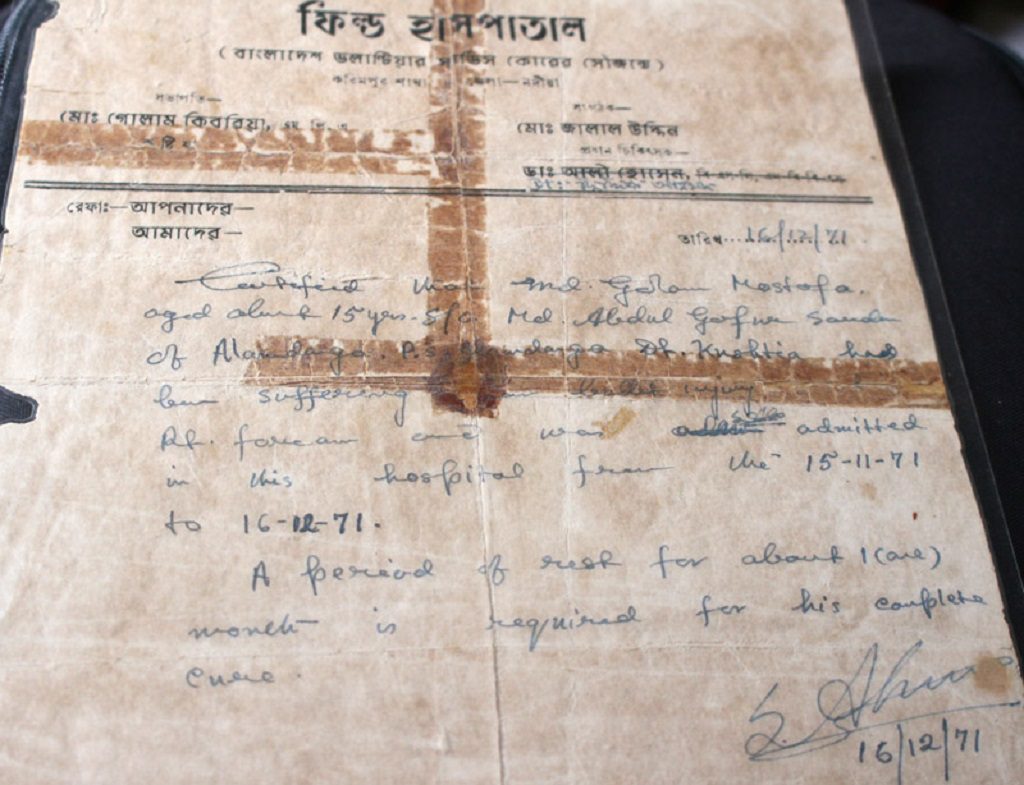 ফিল্ড হাসপাতাল
( বাংলাদেশ ভলান্টিয়ার সার্ভিস কোরের সৌজন্যে )
করিমপুর শাখা জেলা—নদীয়া
সভাপতি—
মোঃ গোলাম কিবরিয়া, এম. পি. এ
সংগঠক—
মোঃ জালাল উদ্দিন
প্রধান চিকিৎসক—
ডাঃ আলী হোসেন,
রেফাঃ—আপনাদের—
আমাদের—
তারিখ....16/12/71
Certified that Md. Golam Mostafa.
aged about 15 yrs. S/o. Md. Abdul Gofur Sardar
of Alamdanga. P.S. Alamdanga Dt. Kushtia had
been suffering from bullet injury in
Rt. forearm and was admitted
in this hospital from the 15-11-71
to 16-12-71.
A period of rest for about 1(one)
month is required for his complete
cure.
S. Ahmed
16/12/71